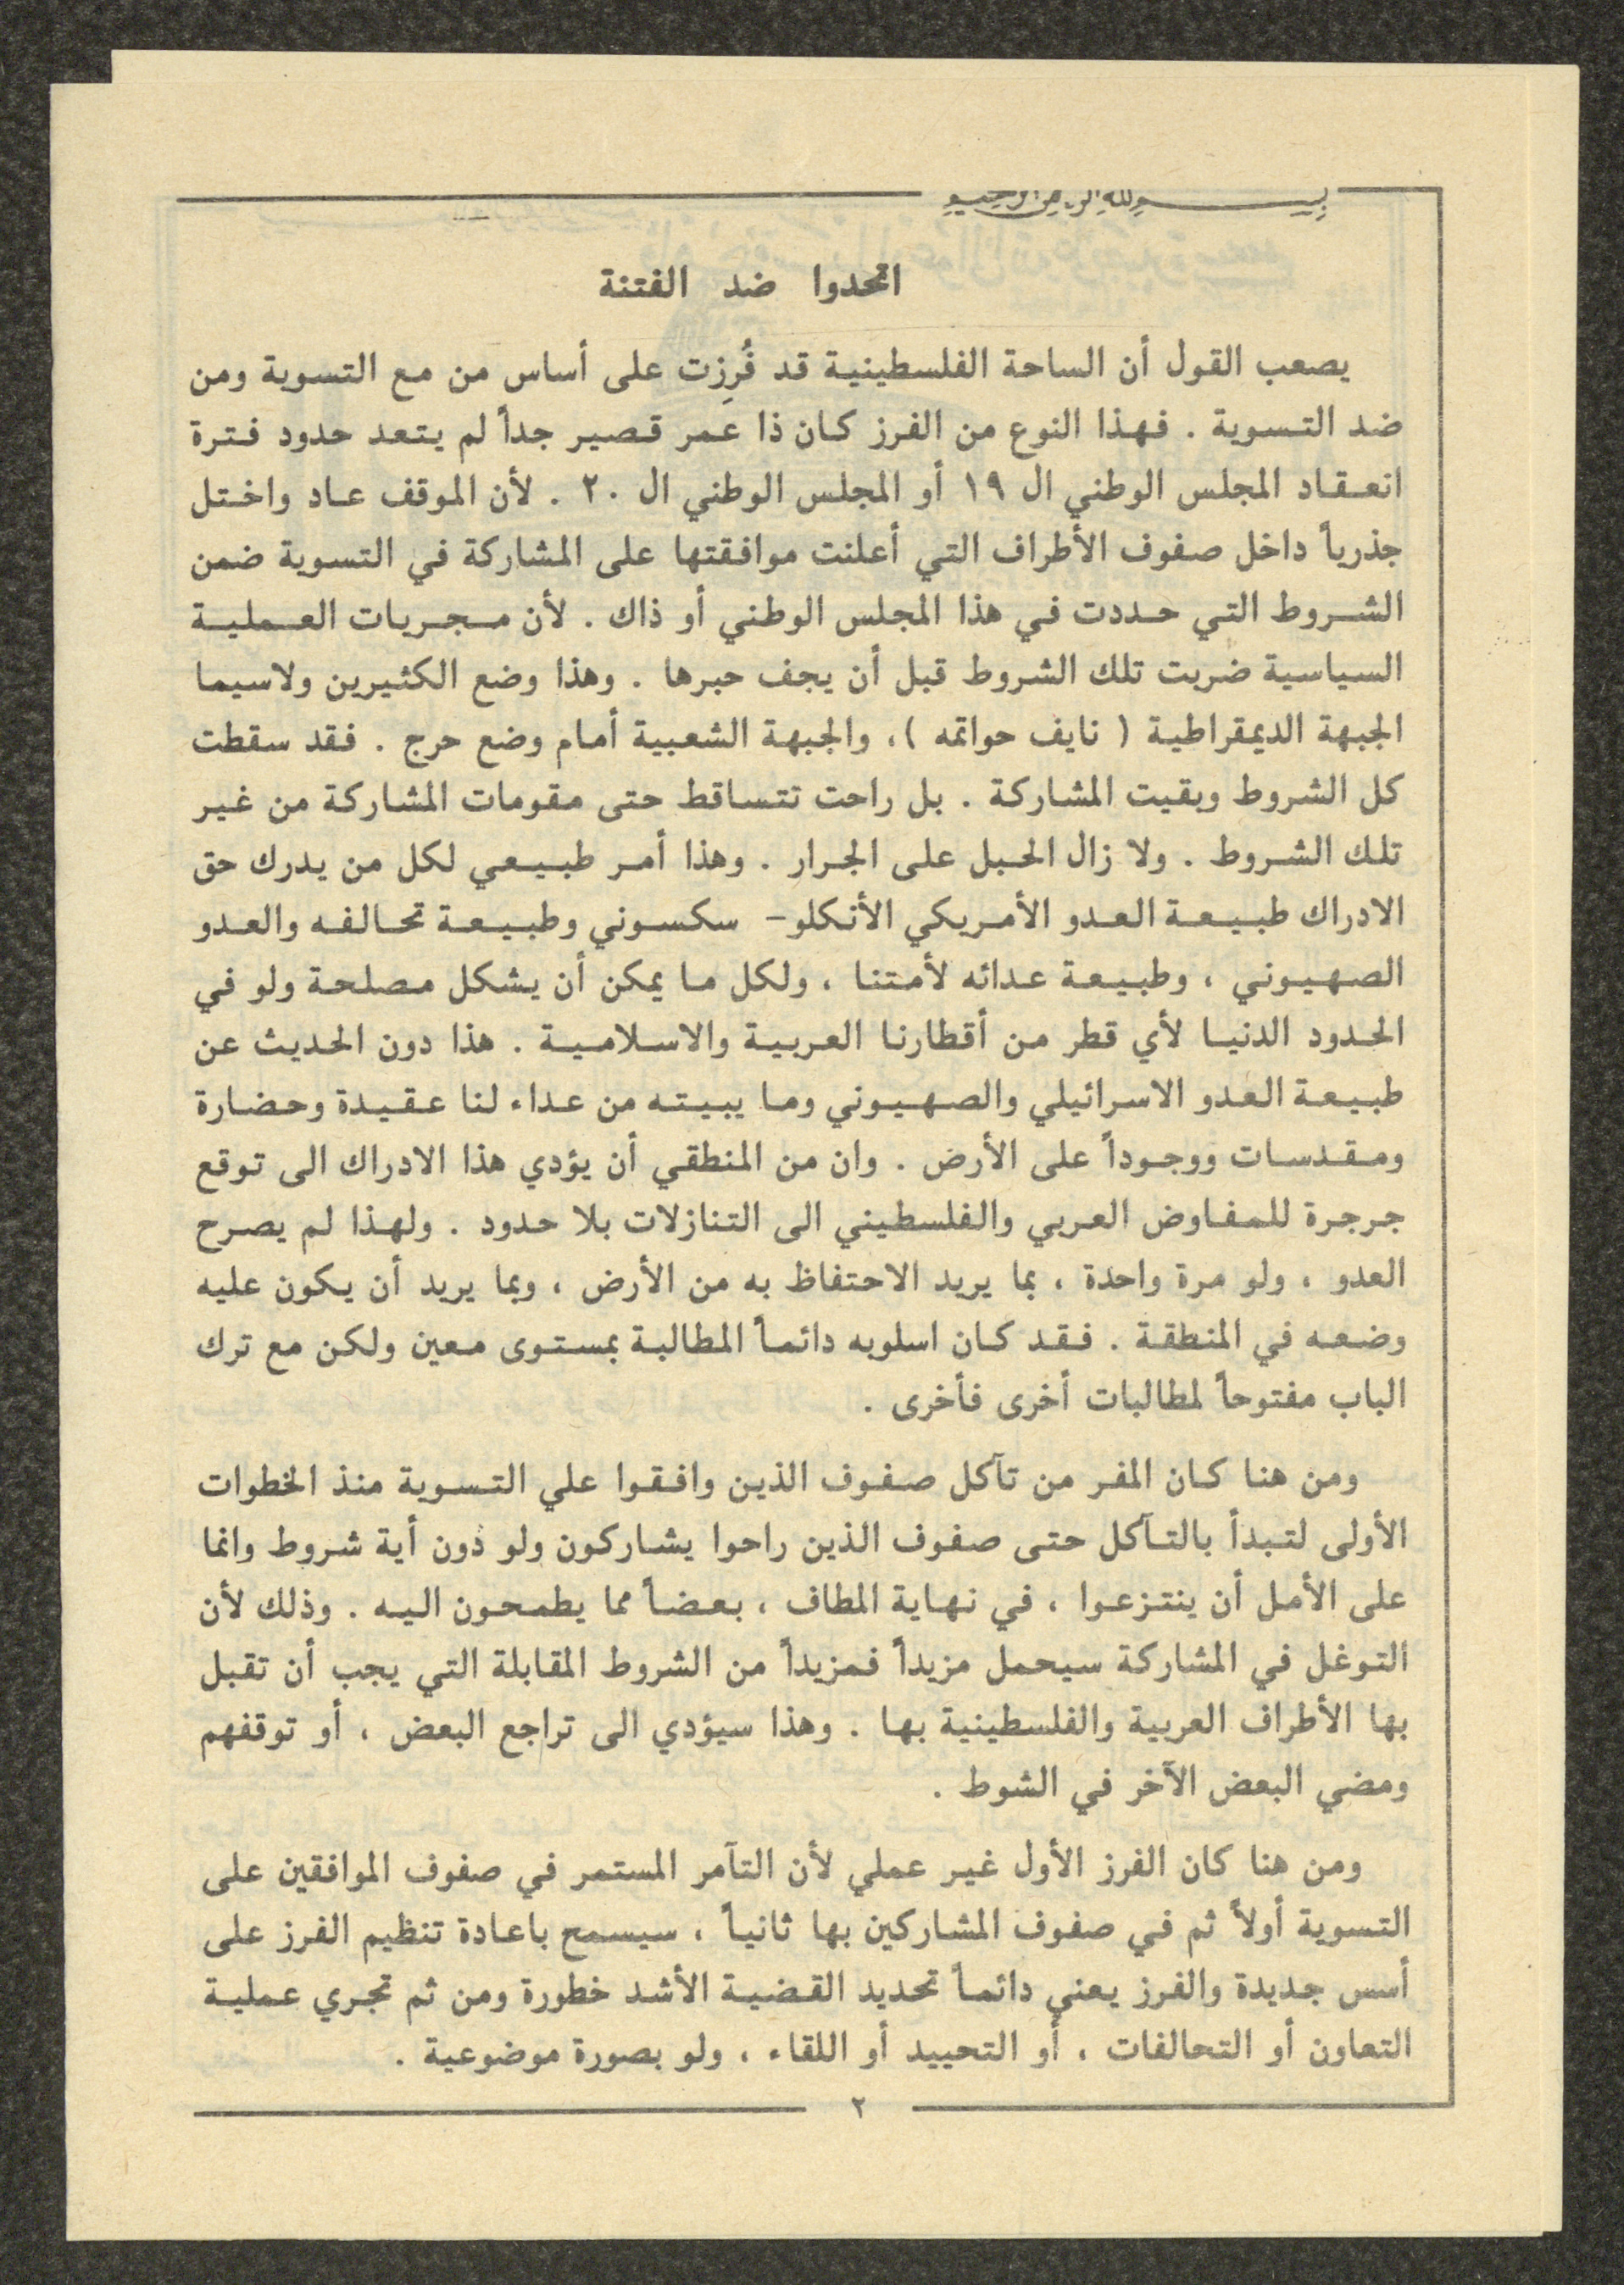 بسم الله الرحمن الرحيم
اتحدوا ضد الفتنة
يصعب القول أن الساحة الفلسطينية قد فُرِزت على أساس من مع التسوية ومن
ضد التسوية . فهذا النوع من الفرز كان ذا عمر قصير جداً لم يتعد حدود فترة
انعقاد المجلس الوطني ال ١٩ أو المجلس الوطني ال ٢٠ . لأن الموقف عاد واختل
جذرياً داخل صفوف الأطراف التي أعلنت موافقتها على المشاركة في التسوية ضمن
الشروط التي حددت في هذا المجلس الوطني أو ذاك . لأن مجريات العملية
السياسية ضربت تلك الشروط قبل أن يجف حبرها . وهذا وضع الكثيرين ولاسيما
الجبهة الديمقراطية ( نايف حواتمه )، والجبهة الشعبية أمام وضع حرج . فقد سقطت
كل الشروط وبقيت المشاركة . بل راحت تتساقط حتى مقومات المشاركة من غير
تلك الشروط . ولا زال الحبل على الجرار . وهذا أمر طبيعي لكل من يدرك حق
الادراك طبيعة العدو الأمريكي الأنكلو- سكسوني وطبيعة تحالفه والعدو
الصهيوني ، وطبيعة عدائه لأمتنا ، ولكل ما يمكن أن يشكل مصلحة ولو في
الحدود الدنيا لأي قطر من أقطارنا العربية والاسلامية . هذا دون الحديث عن
طبيعة العدو الاسرائيلي والصهيوني وما يبيته من عداء لنا عقيدة وحضارة
ومقدسات ووجوداً على الأرض . وان من المنطقي أن يؤدي هذا الادراك الى توقع
جرجرة للمفاوض العربي والفلسطيني الى التنازلات بلا حدود . ولهذا لم يصرح
العدو ، ولو مرة واحدة ، بما يريد الاحتفاظ به من الأرض ، وبما يريد أن يكون عليه
وضعه في المنطقة . فقد كان اسلوبه دائماً المطالبة بمستوى معين ولكن مع ترك
الباب مفتوحاً لمطالبات أخرى فأخرى .
ومن هنا كان المفر من تآكل صفوف الذين وافقوا علي التسوية منذ الخطوات
الأولى لتبدأ بالتآكل حتى صفوف الذين راحوا يشاركون ولو دون أية شروط وانما
على الأمل أن ينتزعوا ، في نهاية المطاف ، بعضاً مما يطمحون اليه . وذلك لأن
التوغل في المشاركة سيحمل مزيداً فمزيداً من الشروط المقابلة التي يجب أن تقبل
بها الأطراف العربية والفلسطينية بها . وهذا سيؤدي الى تراجع البعض ، أو توقفهم
ومضي البعض الآخر في الشوط .
ومن هنا كان الفرز الأول غير عملي لأن التآمر المستمر في صفوف الموافقين على
التسوية أولاً ثم في صفوف المشاركين بها ثانياً ، سيسمح باعادة تنظيم الفرز على
أسس جديدة والفرز يعني دائماً تحديد القضية الأشد خطورة ومن ثم تجري عملية
التعاون أو التحالفات ، أو التحييد أو اللقاء ، ولو بصورة موضوعية .
٢